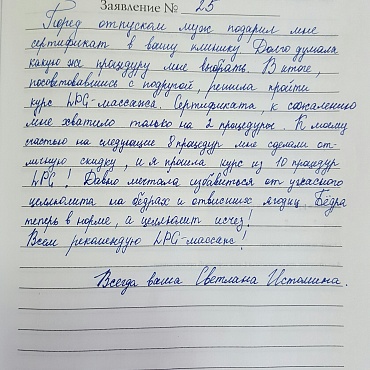 Заявление № 25
Перед отпуском муж подарил мне
сертификат в вашу клинику! Долго думала
какую же процедуру мне выбрать. В итоге,
посоветовавшись с подругой, решила пройти
курс LPG-массажа. Сертификата к сожалению
мне хватило только на 2 процедуры. К моему
счастью на следующие 8 процедур мне сделали от-
личную скидку, и я прошла курс из 10 процедур
LPG! Давно мечтала избавиться от ужасного
целлюлита на бёдрах и отвисших ягодиц. Бёдра
теперь в норме, а целлюлит исчез!
Всем рекомендую LPG-массаж!
Всегда ваша Светлана Истомина.